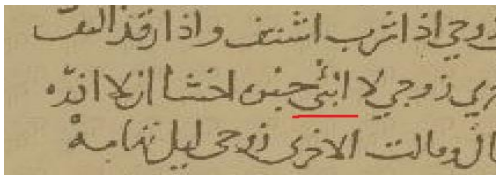 زوجي اذا شرب اشتف واذا رقد التف
خري زوجي لا خبره اخشا ان لا اذره
ال وقالت الاخرى زوجى ليل تهامه